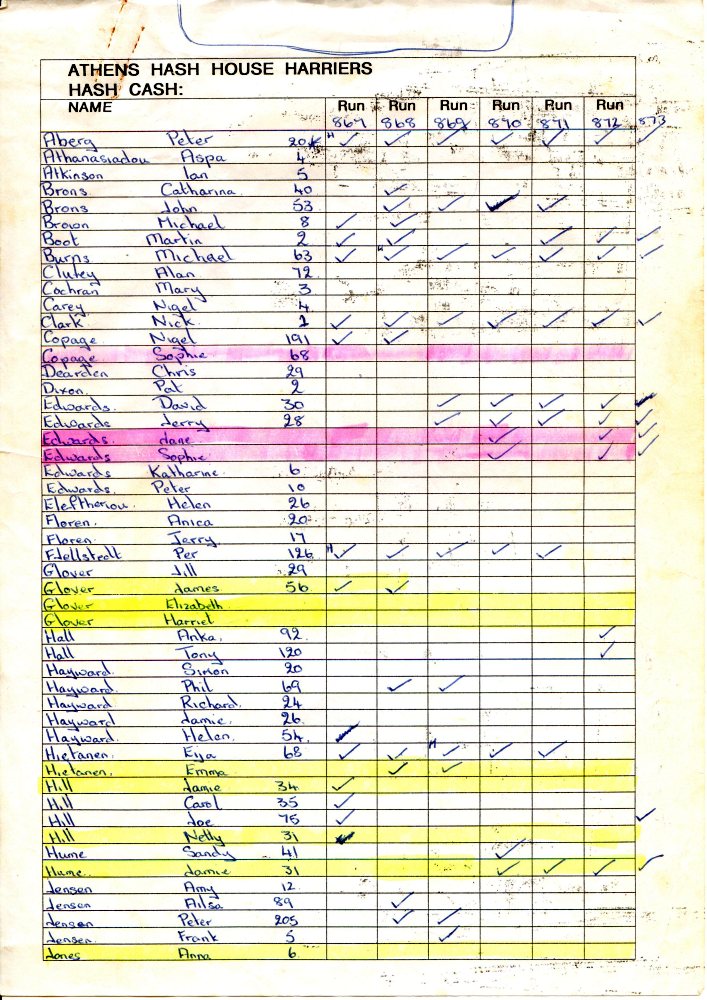 ATHENS HASH HOUSE HARRIERS
HASH CASH:
NAME Run Run Run Run Run Run
867 868 869 870 871 872 873
Aberg Peter H ✓ ✓ ✓ ✓ ✓ ✓ ✓
Athanasiadou Aspa 4
Atkinson Ian 5
Brons Catharina 40 ✓
Brons John 53 ✓ ✓ ✓ ✓
Brown Michael 8 ✓ ✓
Boot Martin 2 ✓ ✓ ✓ ✓ ✓
Burns Michael 63 ✓ H ✓ ✓ ✓ ✓ ✓ ✓
Clutey Alan 72
Cochran Mary 3
Carey Nigel 4
Clark Nick 1 ✓ ✓ ✓ ✓ ✓ ✓ ✓
Copage Nigel 191 ✓ ✓
Copage Sophie 68
Dearden Chris 29
Dixon Pat 2
Edwards. David 30 ✓ ✓ ✓ ✓ ✓
Edwards Jerry 28 ✓ ✓ ✓ ✓ ✓
Edwards. Jane ✓ ✓ ✓
Edwards Sophie ✓ ✓ ✓
Edwards Katharine. 6
Edwards. Peter 10
Eleftheriou. Helen 26
Floren. Anica 20
Floren. Jerry 17
Fjellstedt Per 126 H ✓ ✓ ✓ ✓ ✓
Glover Jill 29
Glover James 56 ✓ ✓
Glover Elizabeth
Glover Harriet
Hall Anka. 92 ✓
Hall Tony 120 ✓
Hayward. Simon 20
Hayward. Phil 69 ✓ ✓
Hayward. Richard. 24
Hayward Jamie. 26
Hayward. Helen. 54 ✓
Hietanen. Eija 68 ✓ ✓ H ✓ ✓ ✓
Hietanen. Emma ✓ ✓
Hill Jamie 34 ✓
Hill Carol 35 ✓
Hill Joe 75 ✓ ✓
Hill Nelly 31 ✓
Hume Sandy 41 ✓
Hume. Jamie 31 ✓ ✓ ✓ ✓
Jensen Amy 12
Jensen Ailsa 89 ✓
Jensen Peter 205 ✓ ✓
Jensen. Frank 5 ✓
Jones Anna 6